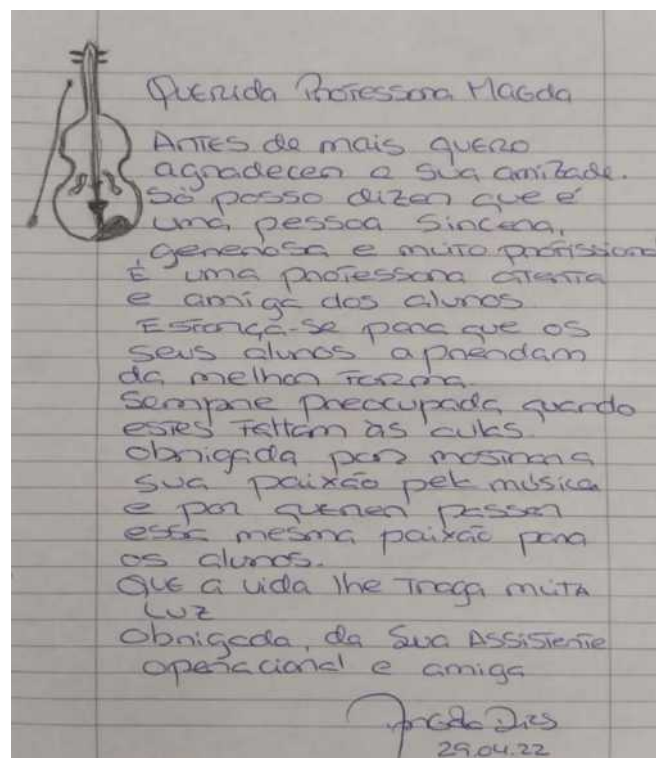 Querida Professora Magda
Antes de mais quero
agradecer a sua amizade.
Só posso dizer que é
uma pessoa sincera,
generosa e muito profissional
É uma professora atenta
e amiga dos alunos
Esforça-se para que os
seus alunos aprendam
da melhor forma.
Sempre preocupada quando
estes faltam às aulas.
Obrigada por mostrar a
sua paixão pela música
e por querer passar
essa mesma paixão para
os alunos.
Que a vida lhe traga muita
luz
Obrigada, da Sua Assistente
operacional e amiga
Dias
29.04.22